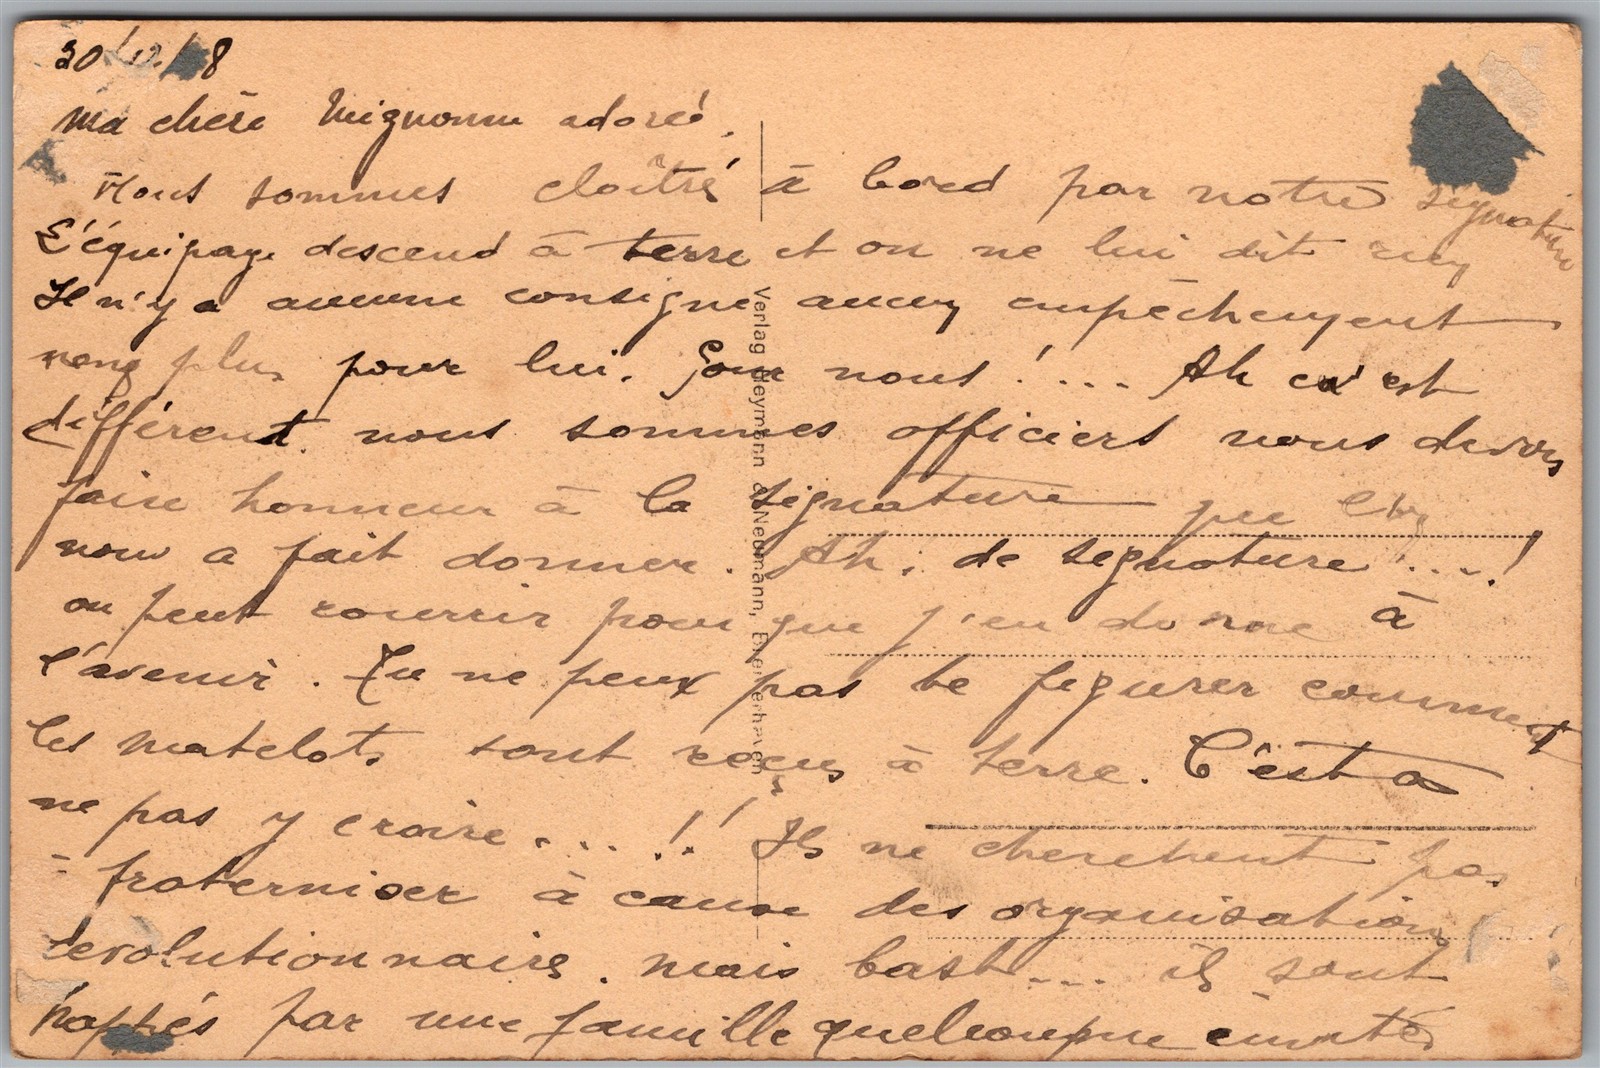 30/12/18
ma chère Mignonne adorée,
Nous sommes cloîtrés à bord par notre signature
L'équipage descend à terre et on ne lui dit rien
Il n'y a aucune consigne aucun empêchement
non plus pour lui. Pour nous !.... Ah c'est
différent. nous sommes officiers nous devons
faire honneur à la signature que l'on
nous a fait donner. Ah, de signature !....!
on peut courrir pour que j'en donne à
l'avenir. Tu ne peux pas te figurer comment
les matelots sont reçus à terre. C'est a
ne pas y croire....!! Ils ne cherchent pas
à fraterniser à cause des organisations
révolutionnaires. mais bast.... ils sont
happés par une famille quelconque invités
Verlag Heymann & Neumann, Bremerhaven